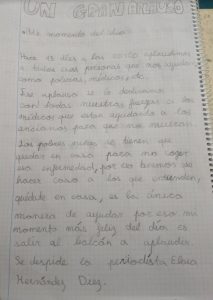 UN GRAN APLAUSO
• Mi momento del día
Hace 15 días a las ocho aplaudimos
a todas esas personas que nos ayudan
como policías, médicos, etc.
Ese aplauso se lo dedicamos
con todas nuestras fuerzas a los
médicos que están ayudando a los
ancianos para que no mueran.
Los pobres se tienen que
quedar en casa para no coger
esa enfermedad, por eso debemos de
hacer caso a los que entienden,
quédate en casa, es la única
manera de ayudar por eso mi
momento más feliz del día es
salir al balcón a aplaudir.
Se despide la periodista Elena
Hernández Díez.